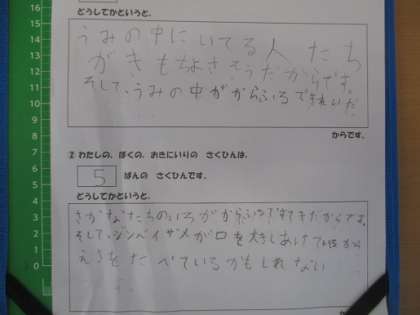 どうしてかというと、
うみの中にいてる人たち
がきもちよさそうだからです。
そして、うみの中ががらふるできれいだ
からです。
② わたしの、ぼくの、おきにいりの さくひんは、
5 ばんの さくひんです。
どうしてかというと、
さかなたちのいろががらふるですてきだからです。
そして、ジンベイザメが口を大きくあけて
えさをたべているかもしれない
16
15
14
13
12
11
10
9
8
7
6
5
4
3
2
1
0